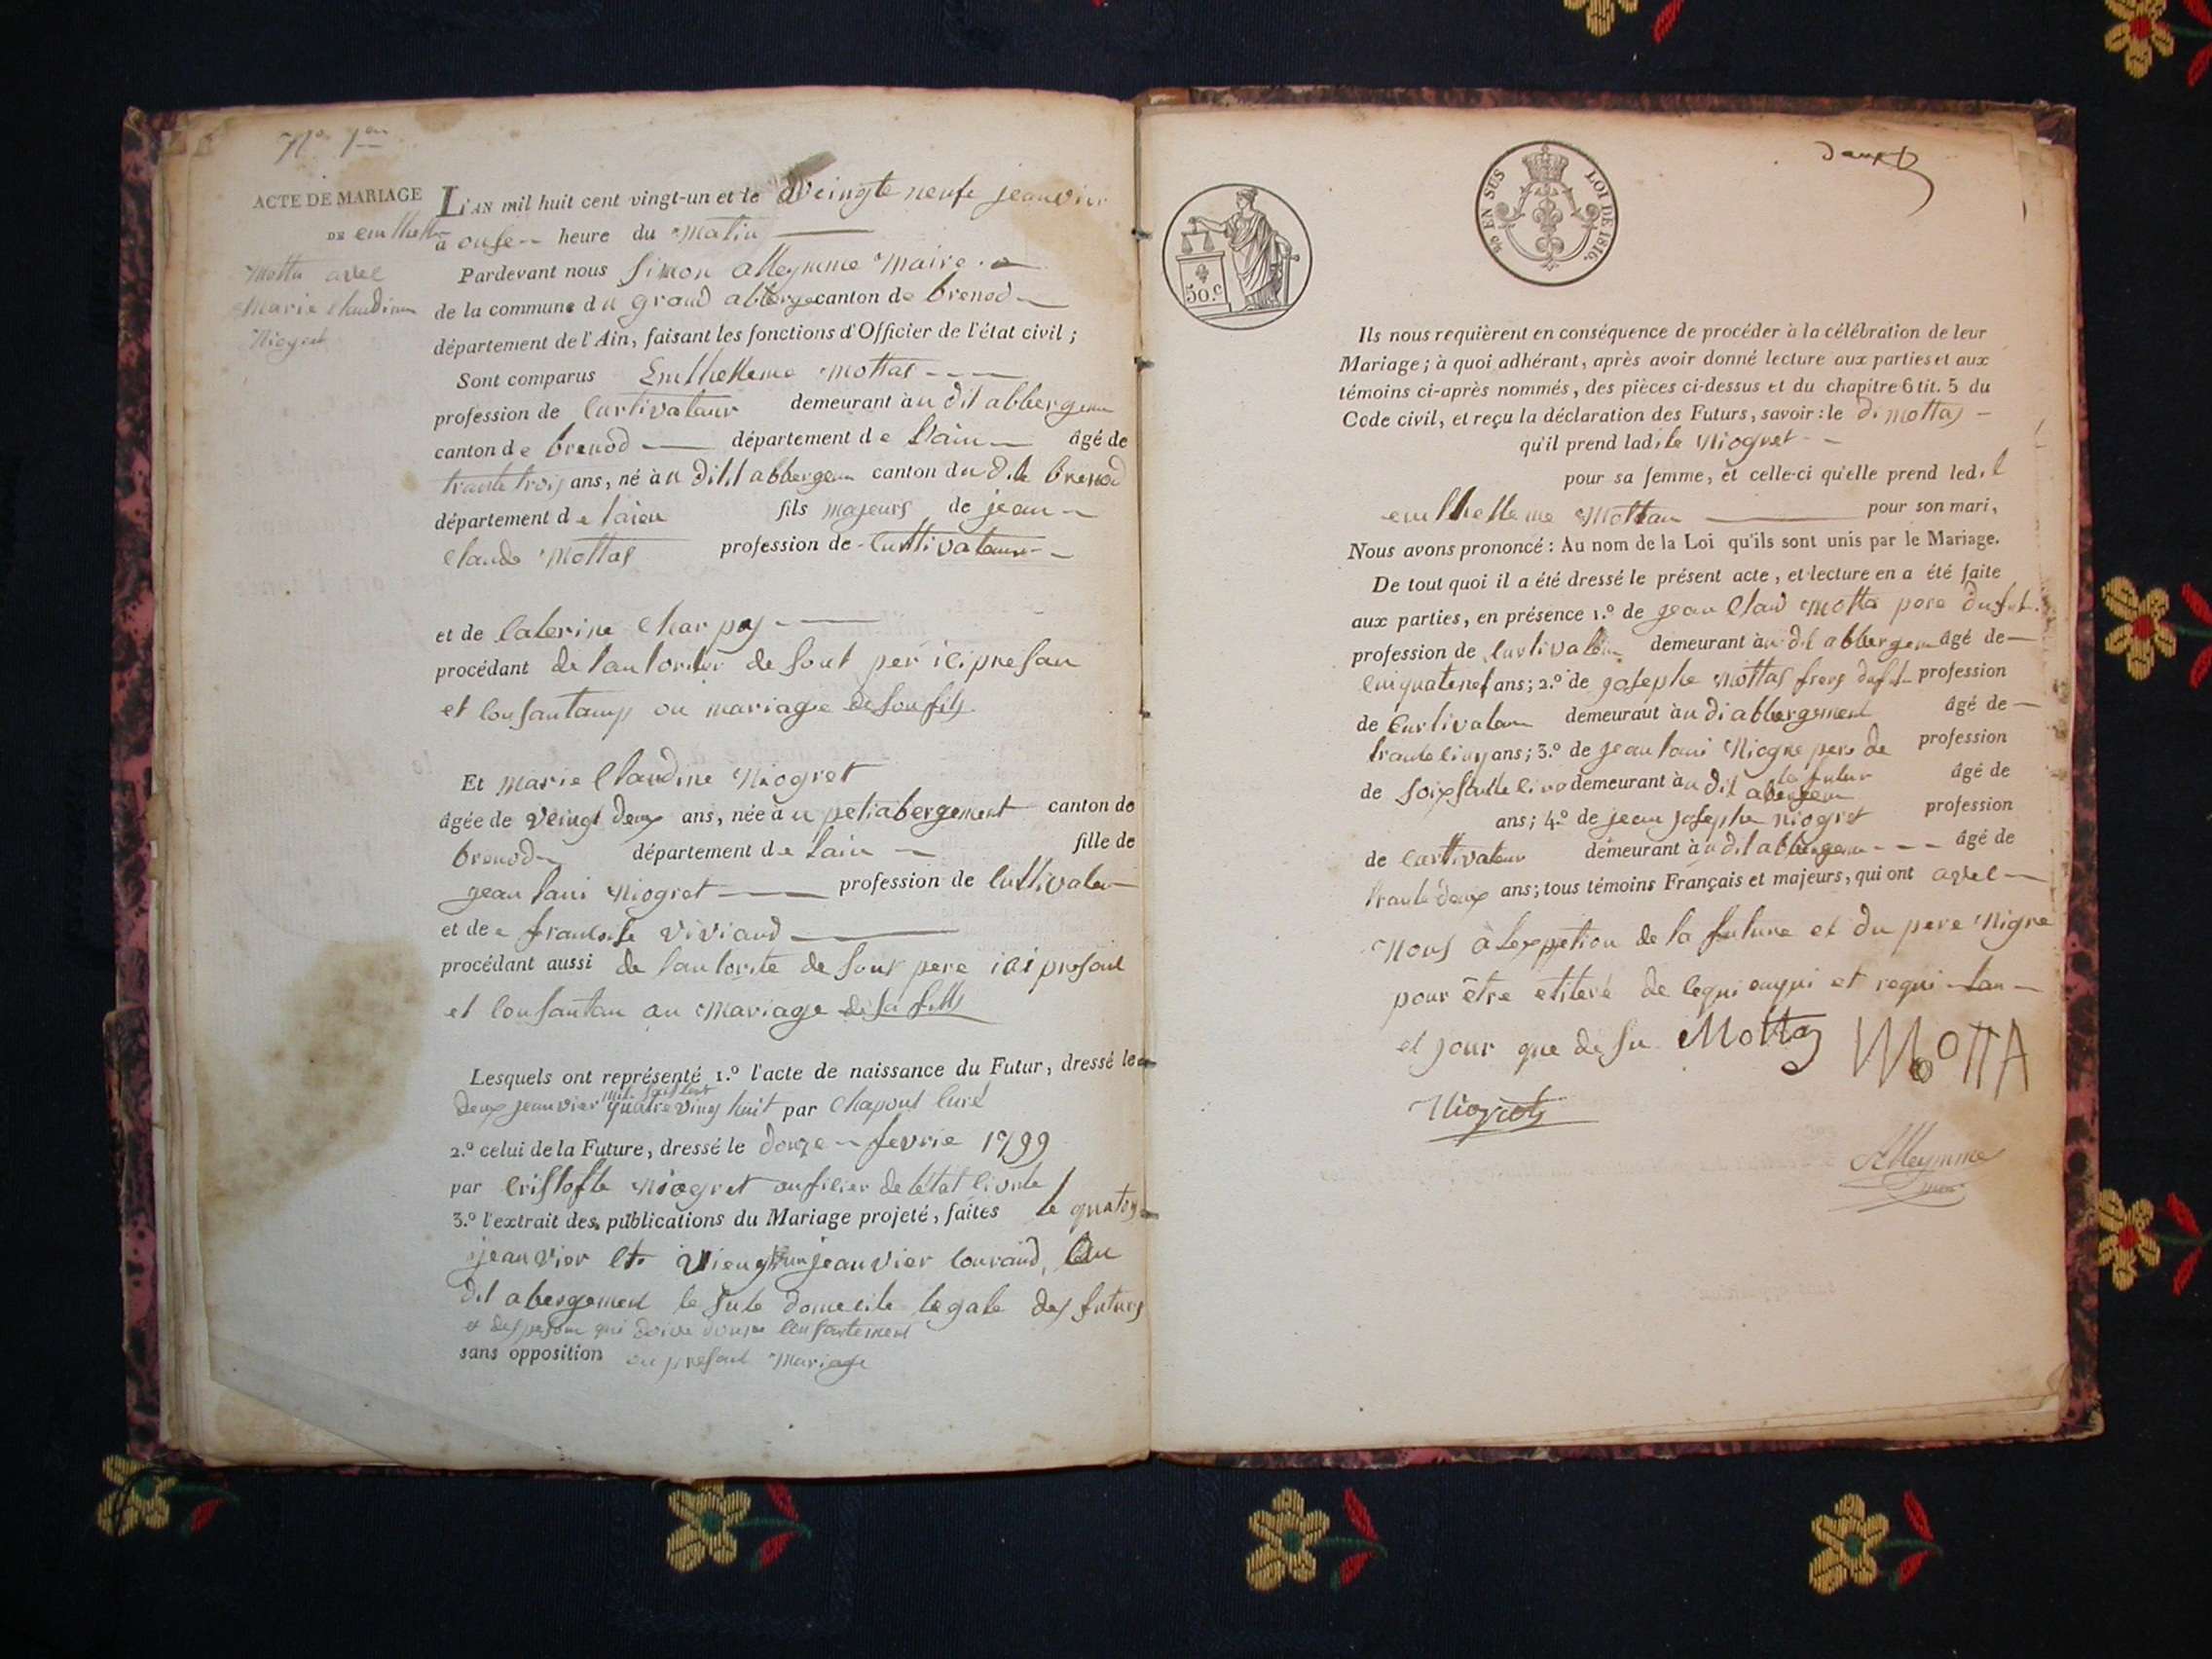 ACTE DE MARIAGE
DE
Motta avel
Marie Claudine
Niogret
L'AN mil huit cent vingt-un et le Veingte neufe jeanvier
à onse heure du Matin
Pardevant nous Simon Alleymme Maire
de la commune du grand abberge canton de brenod
département de l'Ain, faisant les fonctions d'Officier de l'état civil;
Sont comparus Mottas
profession de Curtivataur demeurant à u dit abbergem
canton de brenod département de l'ain âgé de
trante trois ans, né à u dit abbergem canton du dite brenod
département de laien fils majeurs de jean
Claude Mottas profession de Curttivataur
et de Caterine Charpy
procédant de lautoriter de sont per ici presan
et consantamp ou mariage de son fils
Et marie Claudine Niogret
âgée de veingt deux ans, née à u petiabergement canton de
brenod département de lain fille de
jean Niogret profession de
et de fransoise Viviand
procédant aussi de lautorite de sont pere ici presant
et consantan au Mariage de sa fille
Lesquels ont représenté 1.º l'acte de naissance du Futur, dressé le
deux jeanvier mile set sent quatre ving huit par Chapont Curé
2.º celui de la Future, dressé le douze fevrie 1799
par Cristofle Niogret aufisier de letat livile
3.º l'extrait des publications du Mariage projeté, faites le quatorze
jeanvier et Viengt un jeanvier courand, au
dit abergement le sule domecile legale des futurs
et des personne qui doive donne consantement
sans opposition au presant Mariage
50 EN SUS LOI DE 1816.
50.c
deux
Ils nous requièrent en conséquence de procéder à la célébration de leur
Mariage; à quoi adhérant, après avoir donné lecture aux parties et aux
témoins ci-après nommés, des pièces ci-dessus et du chapitre 6 tit. 5 du
Code civil, et reçu la déclaration des Futurs, savoir: le di mottas
qu'il prend ladite Niogret
pour sa femme, et celle-ci qu'elle prend ledit
Mottau pour son mari,
Nous avons prononcé: Au nom de la Loi qu'ils sont unis par le Mariage.
De tout quoi il a été dressé le présent acte, et lecture en a été faite
aux parties, en présence 1.º de jean Claud Motta pere du fut.
profession de Curtivateur demeurant à u dit abbergem âgé de
ans; 2.º de josephe Mottas frere du fut profession
de Curtivataur demeurant à u di abbergement âgé de
trante cinq ans; 3.º de jean Niogre pere de profession
la futur
de soixsantte cinq demeurant à u dit abergem âgé de
ans; 4.º de jean josephe niogret profession
de Curtivateur demeurant à u dit abbergem âgé de
trante deux ans; tous témoins Français et majeurs, qui ont avel
Nous à lexpetion de la future et du pere Nigre
pour être etitere de lequi enqui et requi lan
et jour que de su Mottas MOTTA
Niogret
Alleymme
maire